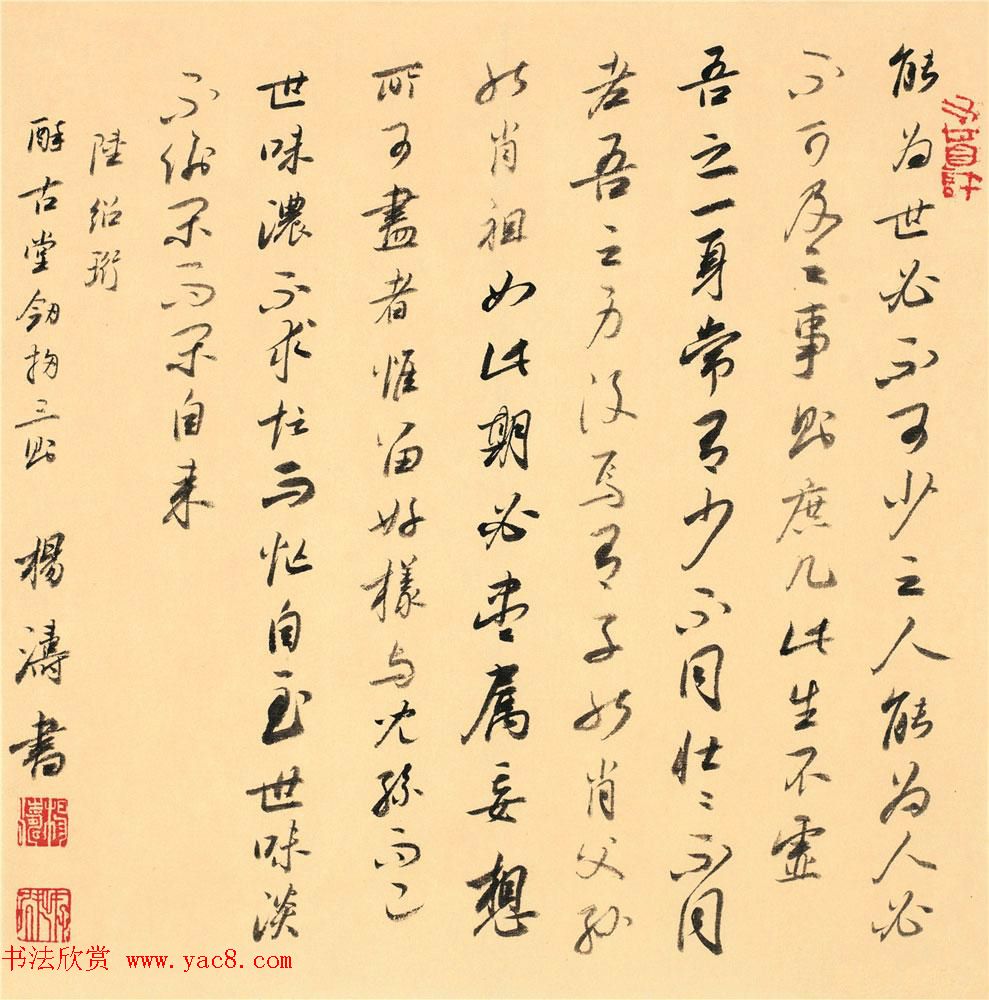 能为世必不可少之人能为人必
不可及之事则庶几此生不虚
吾之一身常有少不同壮〻不同
老吾之身後焉有子能肖父孙
能肖祖如此期必尽属妄想
所可盡者惟留好樣与儿孫而已
世味濃不求忙而忙自至世味淡
不偷闲而闲自来
陸紹珩
醉古堂劒掃三则 楊濤書
书法欣赏 www.yac8.com